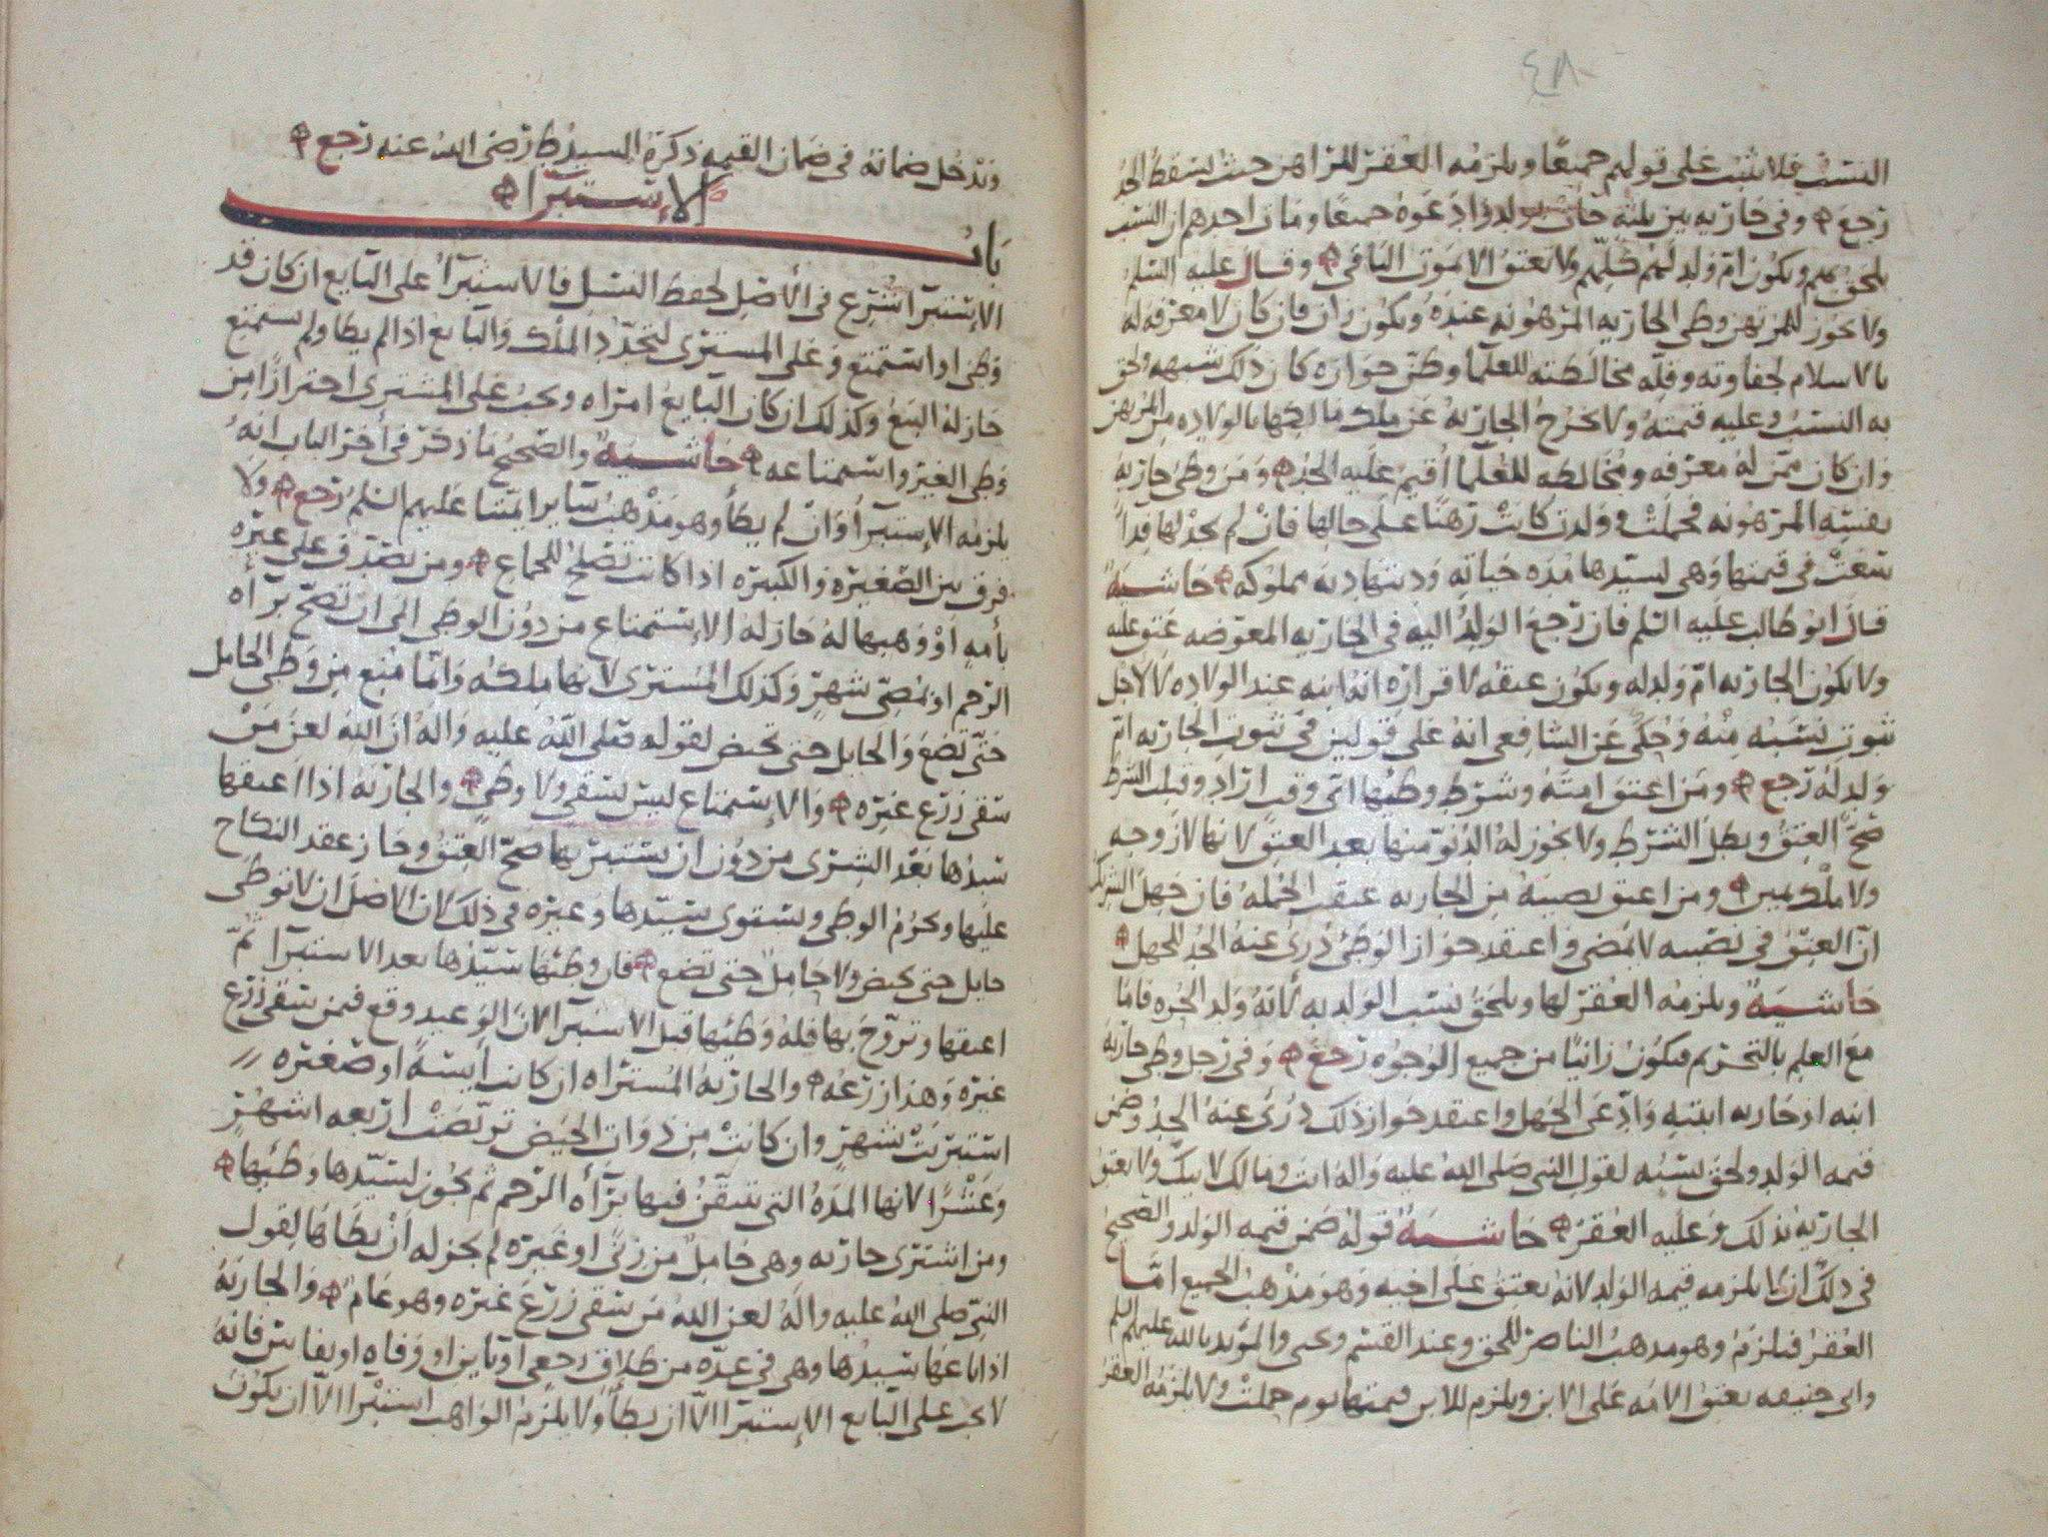 ٤٨
النسب فلا يثبت على قولهم جميعًا ويلزمه العقر للمراهن حيث يسقط الحد
رجع وفي جاريه بين ثلثة جات بولد وادعوه جميعًا ومات احدهم ان النسب
يلحق بهم ويكون ام ولد لهم كلهم ولا تعتق الا بموت الباقي وقال عليه السلم
ولا يجوز للمرتهن وطي الجاريه المرهونه عنده ويكون زان فان كان لا معرفه له
بالاسلام لجفاوته وقله مخالطته للعلما وظن جوازه كان ذلك شبهه ولحق
به النسب وعليه قيمته ولا يخرج الجاريه عن ملك مالكها بالولاده من المرتهن
وان كان ممن له معرفه ومخالطه للعلما أقيم عليه الحد ومن وطى جاريه
نفسه المرهونه فحملت وولدت كانت رهنًا على حالها فان لم يجد لها فدآ
سعت في قيمتها وهي لسيدها مده حياته وديتها ديه مملوكه حاشيه
قال ابو طالب عليه السلم فان رجع الولد اليه في الجاريه المعوضه عتق عليه
ولا يكون الجاريه ام ولد له ويكون عتقه لاقراره انه ابنه عند الولاده لا لاجل
ثبوت نسبه منه وحكي عن الشافعي انه على قولين في ثبوت الجاريه ام
ولد له رجع ومن اعتق امته وشرط وطئها اي وقت اراد وقبلت الشرط
صح العتق وبطل الشرط ولا يجوز له الدنو منها بعد العتق لانها لا زوجه
ولا ملك يمين ومن اعتق نصيبه من الجاريه عتقت الجمله فان جهل الشريك
ان العتق في نصيبه لا يمضي واعتقد جواز الوطئ درئ عنه الحد للجهل
حاشيه ويلزمه العقر لها ويلحق نسب الولد به لأنه ولد الحره فاما
مع العلم بالتحريم فيكون زانيًا من جميع الوجوه رجع وفي رجل وطى جاريه
ابنه او جاريه ابنته وادعى الجهل واعتقد جواز ذلك درئ عنه الحد وضمن
قيمه الولد ولحق نسبه لقول النبي صلى الله عليه واله انت ومالك لابيك ولا يعتق
الجاريه بذلك وعليه العقر حاشيه قوله ضمن قيمه الولد والصحيح
في ذلك ان لا يلزمه قيمه الولد لانه يعتق على اخيه وهو مذهب الجميع امّا
العقر فيلزم وهو مذهب الناصر للحق وعند القسم ويحيى والمؤيد بالله عليهم السلم
وابى حنيفه يعتق الامه على الابن ويلزم للابن قيمتها يوم حملت ولا يلزمه العقر
وتدخل ضمانه في ضمان القيمه ذكره السيد ط رضي الله عنه رجع
باب الإستبرا
الإستبرا شرع في الأصل لحفظ النسل فالاستبرأ على البايع ان كان قد
وطى او استمتع وعلى المسترى لتجدد الملك والبايع اذا لم يطا ولم يستمتع
جاز له البيع وكذلك ان كان البايع امراه ويجب على المشترى احترازًا من
وطى الغير واستمتاعه حاشيه والصحيح ما ذكر في أخر الباب انه
يلزمه الإستبرأ وان لم يطأ وهو مذهب ساير ايمتنا عليهم السلم رجع ولا
فرق بين الصغيره والكبيره اذا كانت تصلح للجماع ومن تصدق على غيره
بأمه أو وهبها له جاز له الإستمتاع من دون الوطي الى ان تصح برآه
الرحم او يمضي شهر وكذلك المسترى لانها ملكه وانما منع من وطي الحامل
حتى تضع والحايل حتى تحيض لقوله صلى الله عليه واله ان الله لعن من
سقى زرع غيره والإستمتاع ليس بسقى ولا وطي والجاريه اذا اعتقها
سيدها بعد الشرى من دون ان يستبريها صح العتق وجاز عقد النكاح
عليها ويحرم الوطي ويستوى سيدها وغيره في ذلك لان الاصل ان لا توطى
حايل حتى تحيض ولا حامل حتى تضع فان وطئها سيدها بعد الاستبرا ثم
اعتقها وتزوج بها فله وطئها قبل الاستبرا لان الوعيد وقع فيمن سقى زرع
غيره وهذا زرعه والجاريه المستراه ان كانت آيسه او صغيره
استبريت شهر وان كانت من ذوات الحيض تربصت اربعه اشهر
وعشرًا لانها المده التي تتيقن فيها برآه الرحم ثم يجوز لسيدها وطئها
ومن اشترى جاريه وهي حامل من زنى او غيره لم يجز له أن يطاها لقول
النبي صلى الله عليه واله لعن الله من سقى زرع غيره وهو عام والجاريه
اذا باعها سيدها وهي في عده من طلاق رجعي او باين او وفاه او نفاس فانه
لا يجب على البايع الإستبرا الا ان يطأ ولا يلزم الواهب استبرا الا ان يكون